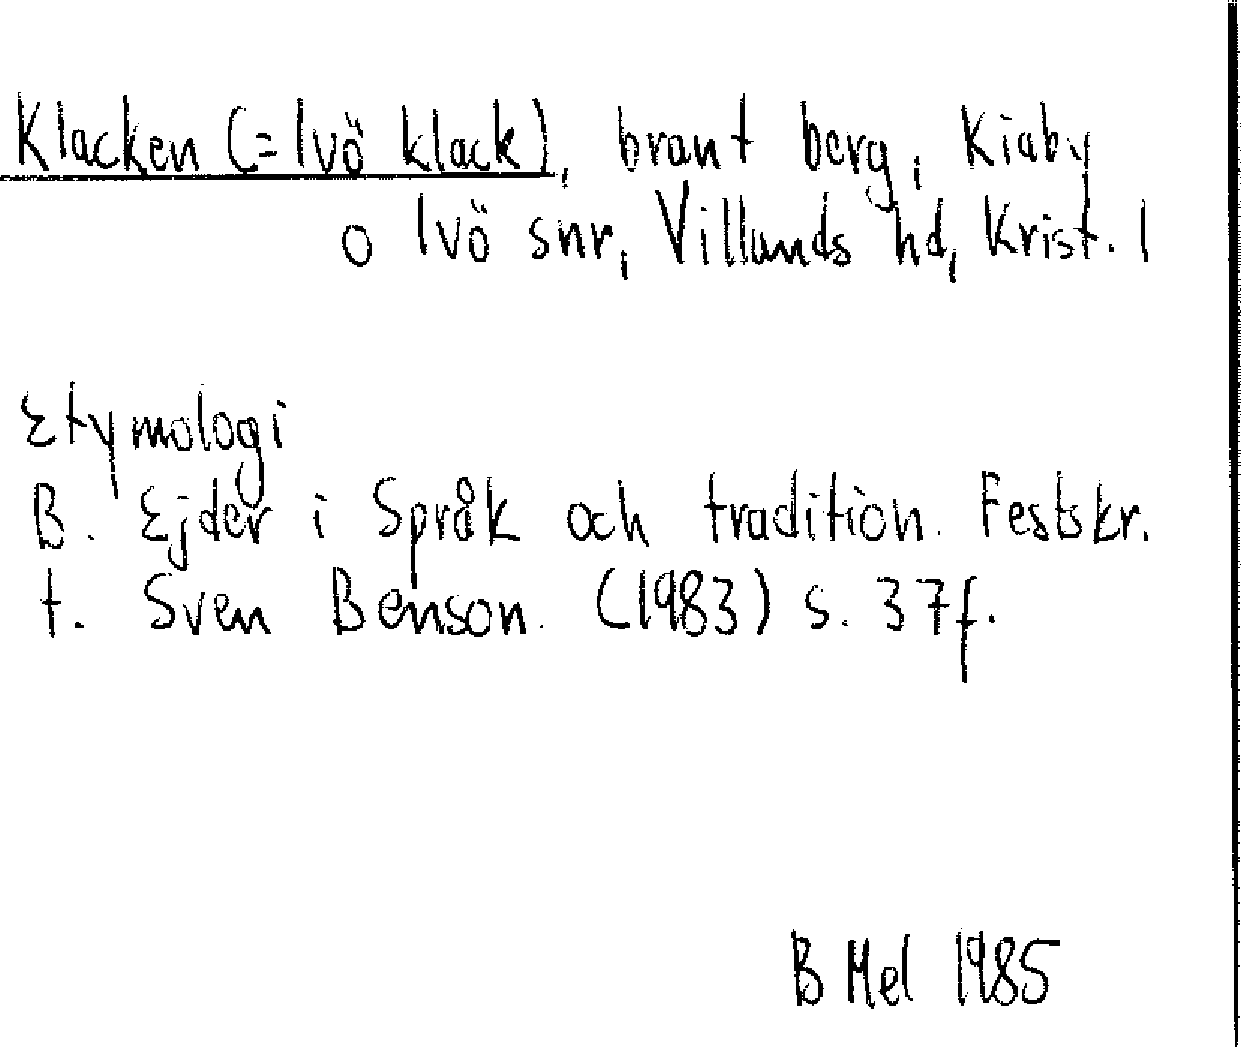 Klacken (= Ivö klack), brant berg, Kiaby
o Ivö snr, Villands hd, Krist. l
Etymologi
B. Ejder i Språk och tradition. Festskr.
t. Sven Benson. (1983) s. 37f.
B Mel 1985